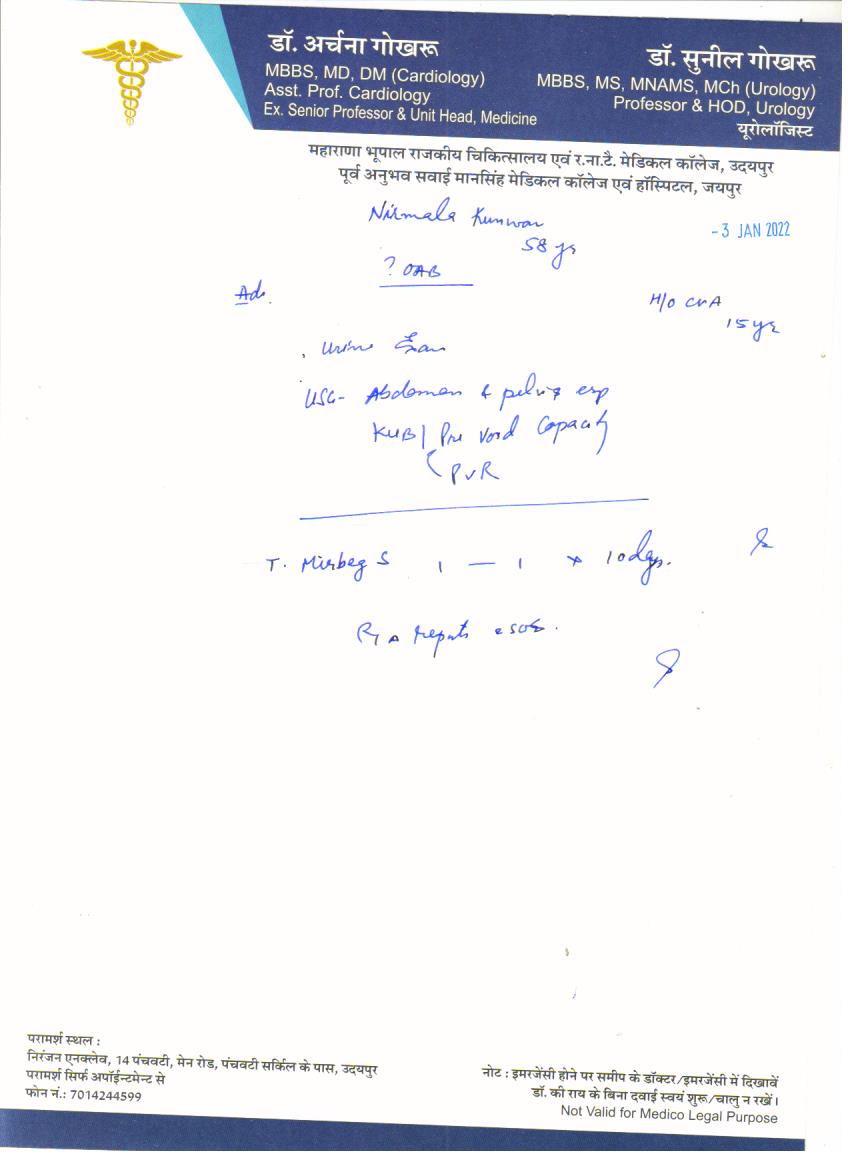 डॉ. अर्चना गोखरू
MBBS, MD, DM (Cardiology)
Asst. Prof. Cardiology
Ex. Senior Professor & Unit Head, Medicine
डॉ. सुनील गोखरू
MBBS, MS, MNAMS, MCh (Urology)
Professor & HOD, Urology
यूरोलॉजिस्ट
महाराणा भूपाल राजकीय चिकित्सालय एवं र.ना.टै. मेडिकल कॉलेज, उदयपुर
पूर्व अनुभव सवाई मानसिंह मेडिकल कॉलेज एवं हॉस्पिटल, जयपुर
Nirmala Kunwar
-3 JAN 2022
58 yr
? OAB
Adv.
H/O CVA
15 yr
Urine Exam
USG- Abdomen & pelvis esp
KUB/ Pre Void Capacity
PVR
T. Mirbeg S 1 — 1 x 10 days.
reports
परामर्श स्थल :
निरंजन एनक्लेव, 14 पंचवटी, मेन रोड, पंचवटी सर्किल के पास, उदयपुर
परामर्श सिर्फ अपॉईन्टमेन्ट से
फोन नं.: 7014244599
नोट : इमरजेंसी होने पर समीप के डॉक्टर/इमरजेंसी में दिखावें
डॉ. की राय के बिना दवाई स्वयं शुरू/चालु न रखें।
Not Valid for Medico Legal Purpose